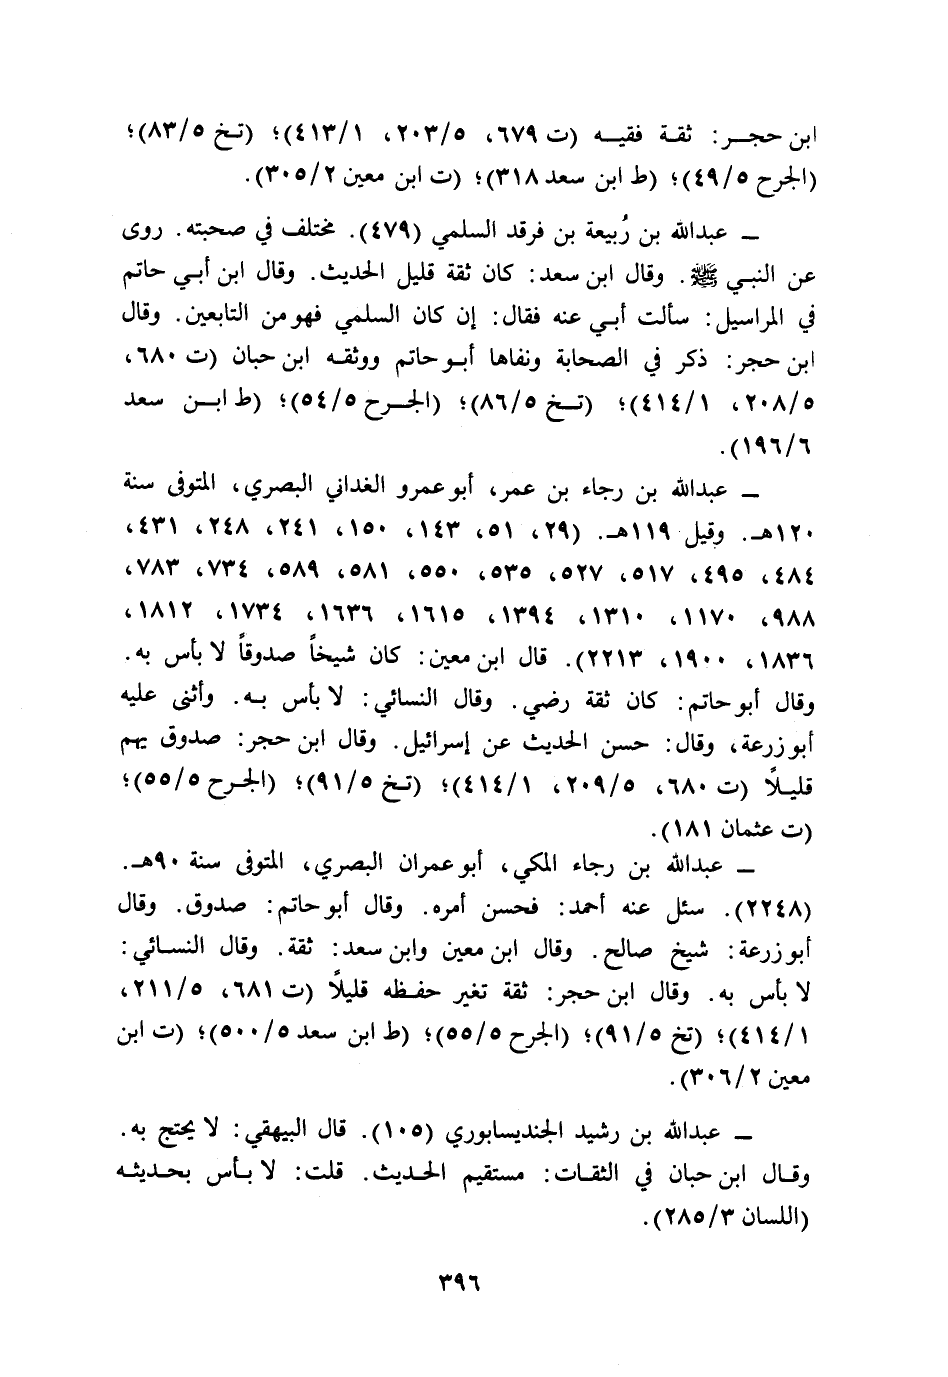 ابن حجر: ثقة فقيه (ت ٦٧٩، ٢٠٣/٥، ٤١٣/١)؛ (تخ ٨٣/٥)؛
(الجرح ٤٩/٥)؛ (ط ابن سعد ٣١٨)؛ (ت ابن معين ٣٠٥/٢).
ــ عبدالله بن رُبيعة بن فرقد السلمي (٤٧٩). مختلف في صحبته. روى
عن النبي ﷺ. وقال ابن سعد: كان ثقة قليل الحديث. وقال ابن أبي حاتم
في المراسيل: سألت أبي عنه فقال: إن كان السلمي فهو من التابعين. وقال
ابن حجر: ذكر في الصحابة ونفاها أبو حاتم ووثقه ابن حبان (ت ٦٨٠،
٢٠٨/٥، ٤١٤/١)؛ (تخ ٨٦/٥)؛ (الجرح ٥٤/٥)؛ (ط ابن سعد
١٩٦/٦).
ــ عبدالله بن رجاء بن عمر، أبو عمرو الغداني البصري، المتوفى سنة
١٢٠هـ. وقيل ١١٩هـ. (٢٩، ٥١، ١٤٣، ١٥٠، ٢٤١، ٢٤٨، ٤٣١،
٤٨٤، ٤٩٥، ٥١٧، ٥٢٧، ٥٣٥، ٥٥٠، ٥٨١، ٥٨٩، ٧٣٤، ٧٨٣،
٩٨٨، ١١٧٠، ١٣١٠، ١٣٩٤، ١٦١٥، ١٦٣٦، ١٧٣٤، ١٨١٢،
١٨٣٦، ١٩٠٠، ٢٢١٣). قال ابن معين: كان شيخاً صدوقاً لا بأس به.
وقال أبو حاتم: كان ثقة رضي. وقال النسائي: لا بأس به. وأثنى عليه
أبو زرعة، وقال: حسن الحديث عن إسرائيل. وقال ابن حجر: صدوق يهم
قليلاً (ت ٦٨٠، ٢٠٩/٥، ٤١٤/١)؛ (تخ ٩١/٥)؛ (الجرح ٥٥/٥)؛
(ت عثمان ١٨١).
ــ عبدالله بن رجاء المكي، أبو عمران البصري، المتوفى سنة ٩٠هـ.
(٢٢٤٨). سئل عنه أحمد: فحسن أمره. وقال أبو حاتم: صدوق. وقال
أبو زرعة: شيخ صالح. وقال ابن معين وابن سعد: ثقة. وقال النسائي:
لا بأس به. وقال ابن حجر: ثقة تغير حفظه قليلاً (ت ٦٨١، ٢١١/٥،
٤١٤/١)؛ (تخ ٩١/٥)؛ (الجرح ٥٥/٥)؛ (ط ابن سعد ٥٠٠/٥)؛ (ت ابن
معين ٣٠٦/٢).
ــ عبدالله بن رشيد الجنديسابوري (١٠٥). قال البيهقي: لا يحتج به.
وقال ابن حبان في الثقات: مستقيم الحديث. قلت: لا بأس بحديثه
(اللسان ٢٨٥/٣).
٣٩٦